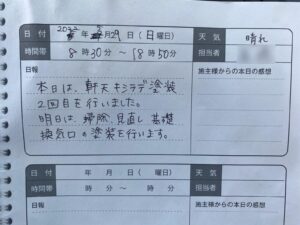 日 付 2022年5月29日(日曜日) 天 気 晴れ
時間帯 8時30分 ～ 18時50分 担当者
日報 施主様からの本日の感想
本日は、軒天キシラデ塗装
2回目を行いました。
明日は、掃除、見直し、基礎
換気口の塗装を行います。
日 付 年 月 日 ( 曜日) 天 気
時間帯 時 分 ～ 時 分 担当者
日報 施主様からの本日の感想